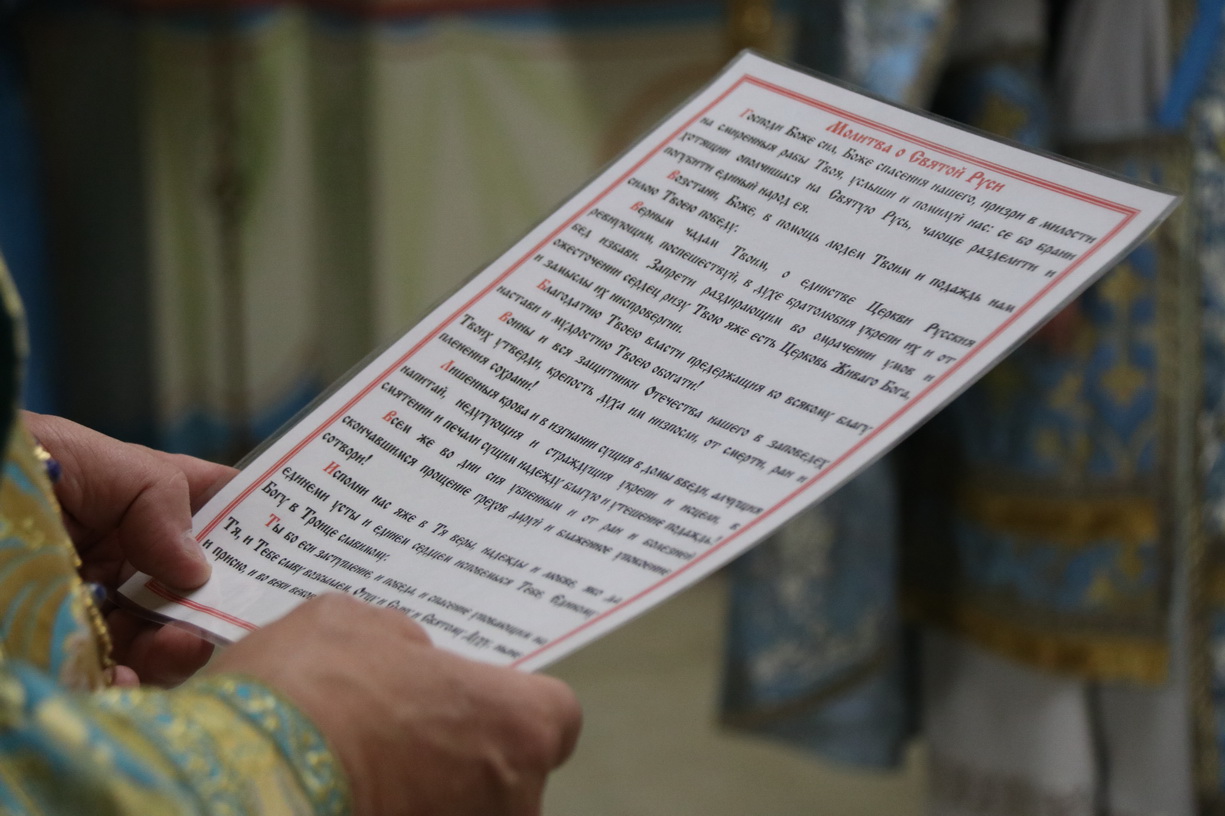 Молитва о Святой Руси
Господи Боже сил, Боже спасения нашего, призри в милости
на смиренныя рабы Твоя, услыши и помилуй нас: се бо брани
хотящии ополчишася на Святую Русь, чающе разделити и
погубити единый народ ея.
Возстани, Боже, в помощь людем Твоим и подаждь нам
силою Твоею победу.
Верным чадам Твоим, о единстве Церкви Русския
ревнующим, поспешествуй, в духе братолюбия укрепи их и от
бед избави. Запрети раздирающим во омрачении умов и
ожесточении сердец ризу Твою яже есть Церковь Живаго Бога,
и замыслы их ниспровергни.
Благодатию Твоею власти предержащия ко всякому благу
настави и мудростию Твоею обогати!
Воины и вся защитники Отечества нашего в заповедех
Твоих утверди, крепость духа им низпосли, от смерти, ран и
пленения сохрани!
Лишенныя крова и в изгнании сущия в домы введи, алчущия
напитай, недугующия и страждущия укрепи и исцели, в
смятении и печали сущим надежду благую и утешение подаждь!
Всем же во дни сия убиенным и от ран и болезней
скончавшимся прощение грехов даруй и блаженное упокоение
сотвори!
Исполни нас яже в Тя веры, надежды и любве,
единеми усты и единем сердцем исповемыся Тебе, Единому
Богу в Троице славимому:
Ты бо еси заступление, и победа, и спасение уповающим на
Тя, и Тебе славу возсылаем, Отцу и Сыну и Святому Духу, ныне
и присно, и во веки веков